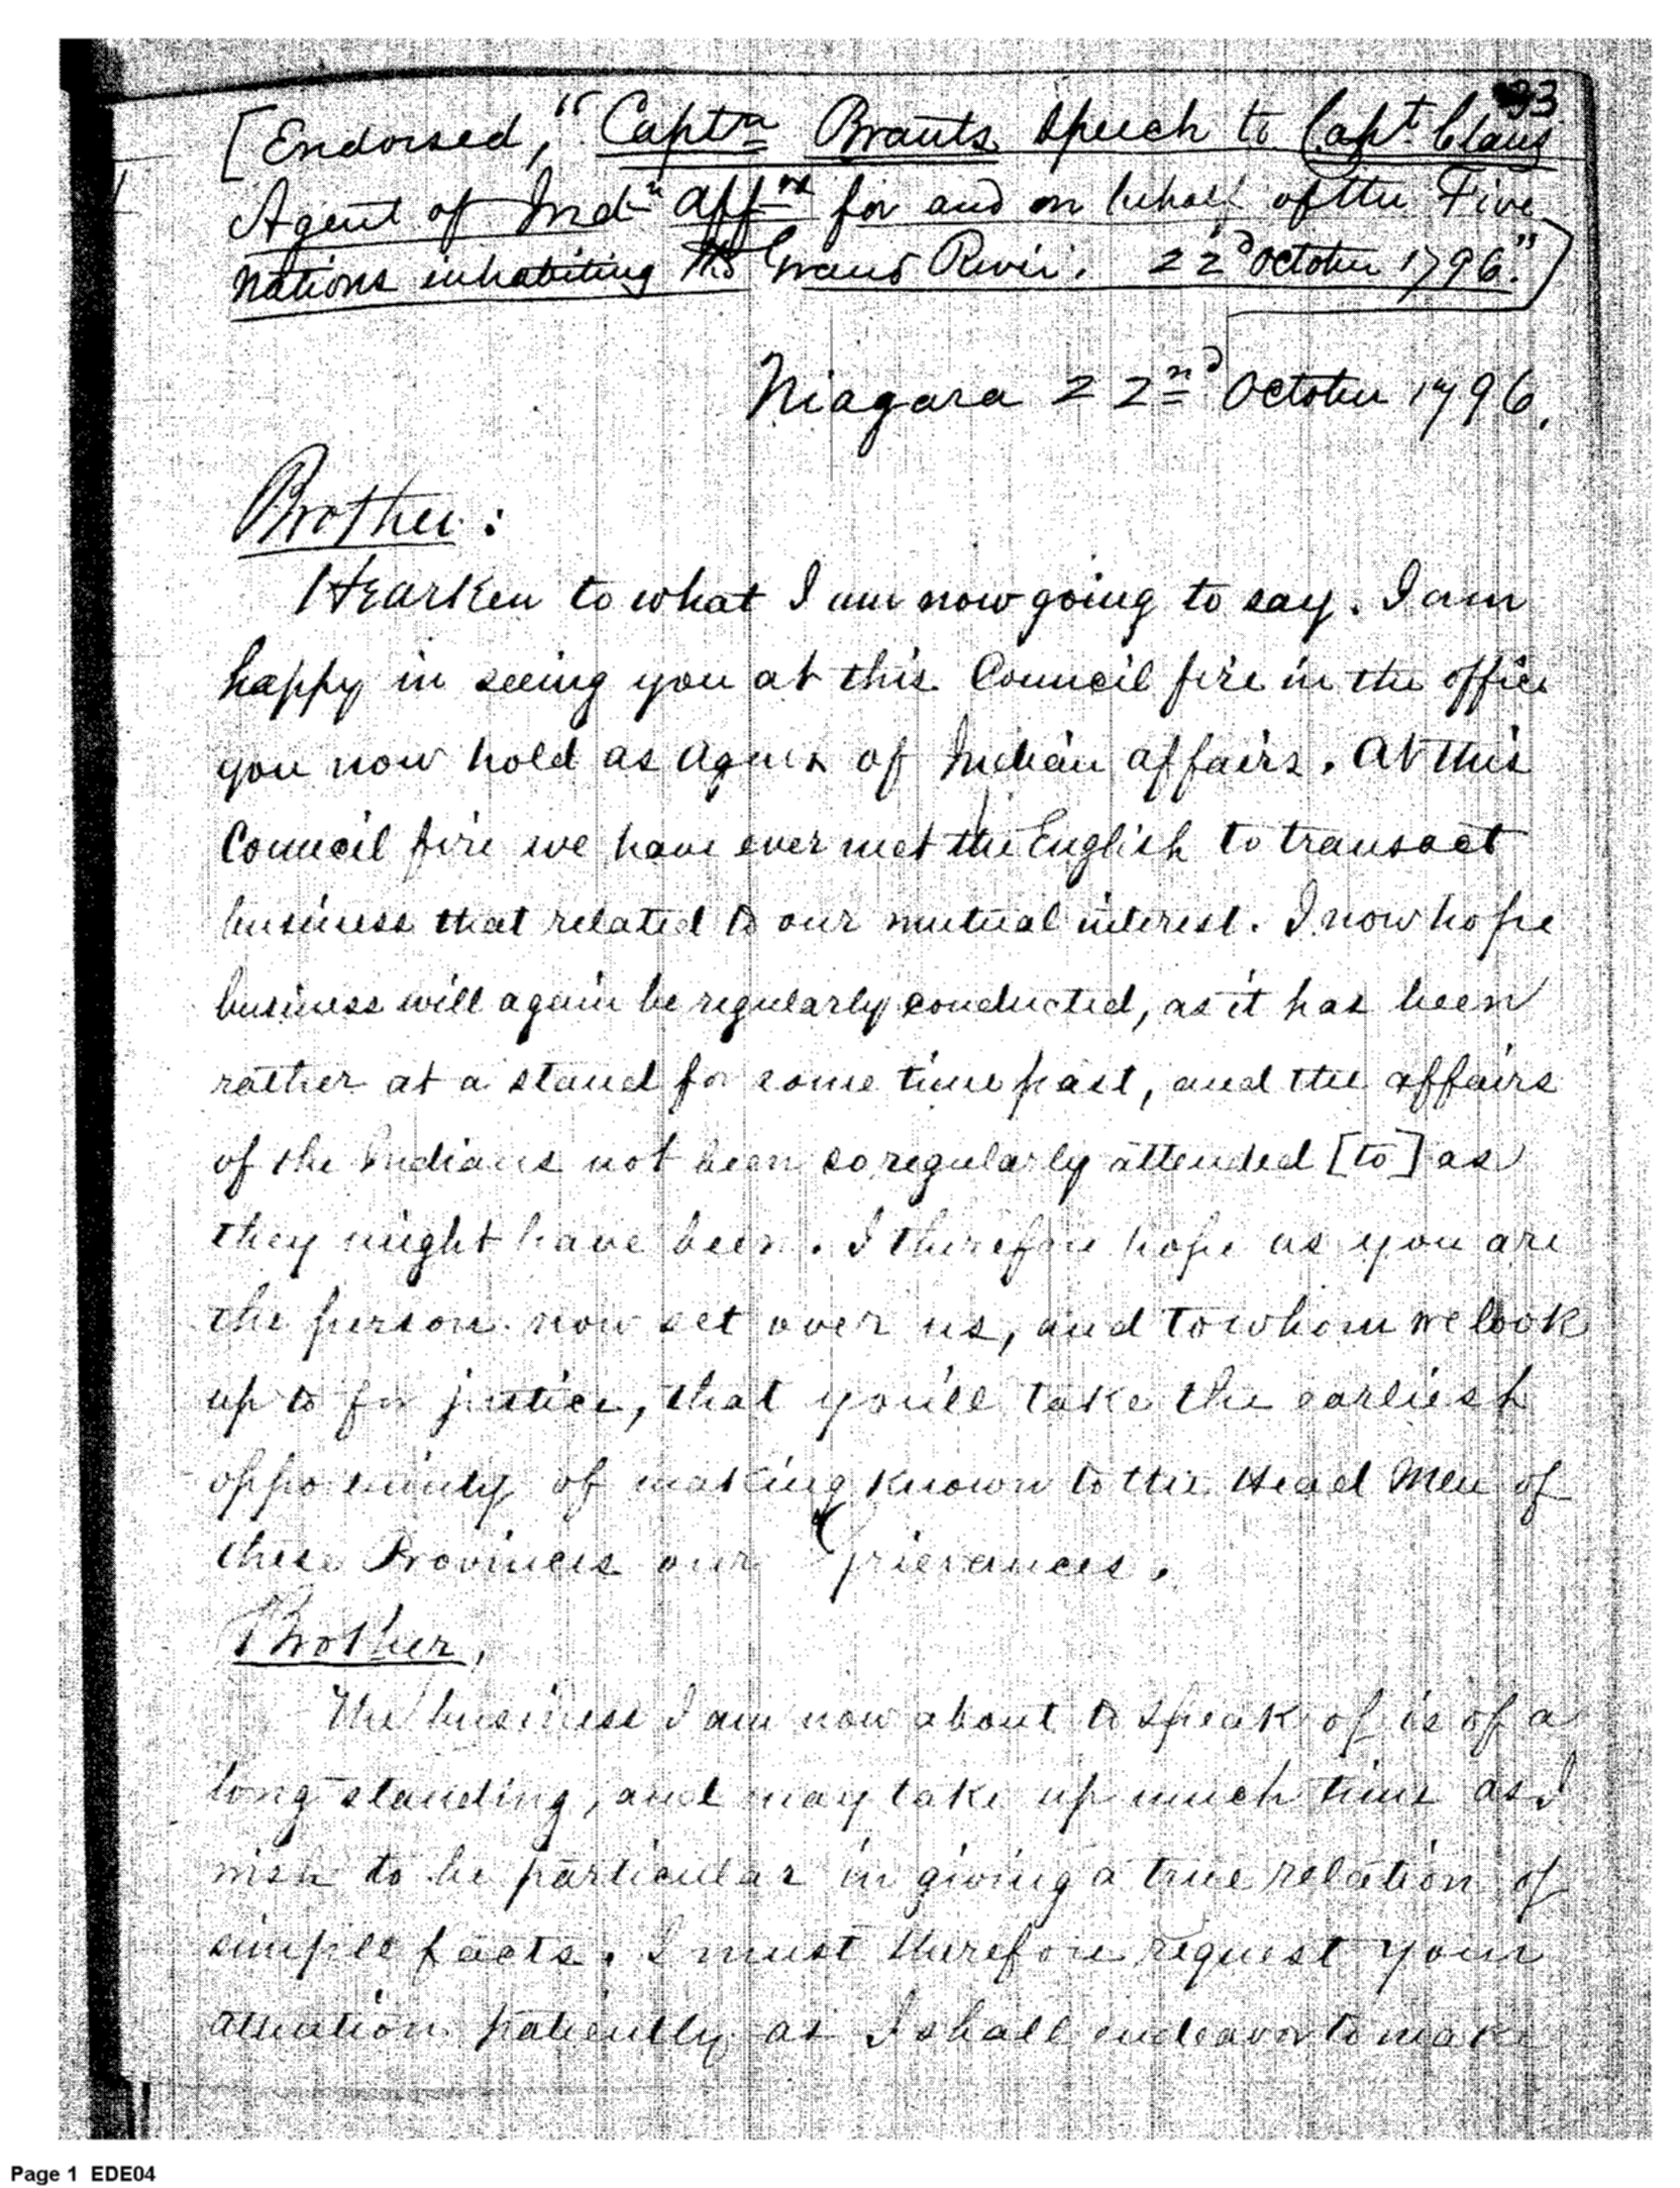 93
[Endorsed, "Captn Brants Speech to Capt. Claus
Agent of Indn affrs for and on behalf of the Five
Nations inhabiting the Grand River. 22d October 1796."]
Niagara 22nd October 1796.
Brother:
Hearken to what I am now going to say. I am
happy in seeing you at this Council fire in the office
you now hold as Agent of Indian affairs. At this
Council fire we have ever met the English to transact
business that related to our mutual interest. I now hope
business will again be regularly conducted, as it has been
rather at a stand for some time past, and the affairs
of the Indians not been so regularly attended [to] as
they might have been. I therefore hope as you are
the person now set over us, and to whom we look
up to for justice, that you'll take the earliest
opportunity of making known to the Head Men of
these Provinces our Grievances.
Brother,
The business I am now about to speak of is of a
long standing, and may take up much time as I
wish to be particular in giving a true relation of
simple facts. I must therefore request your
attention patiently as I shall endeavor to make
Page 1 EDE04